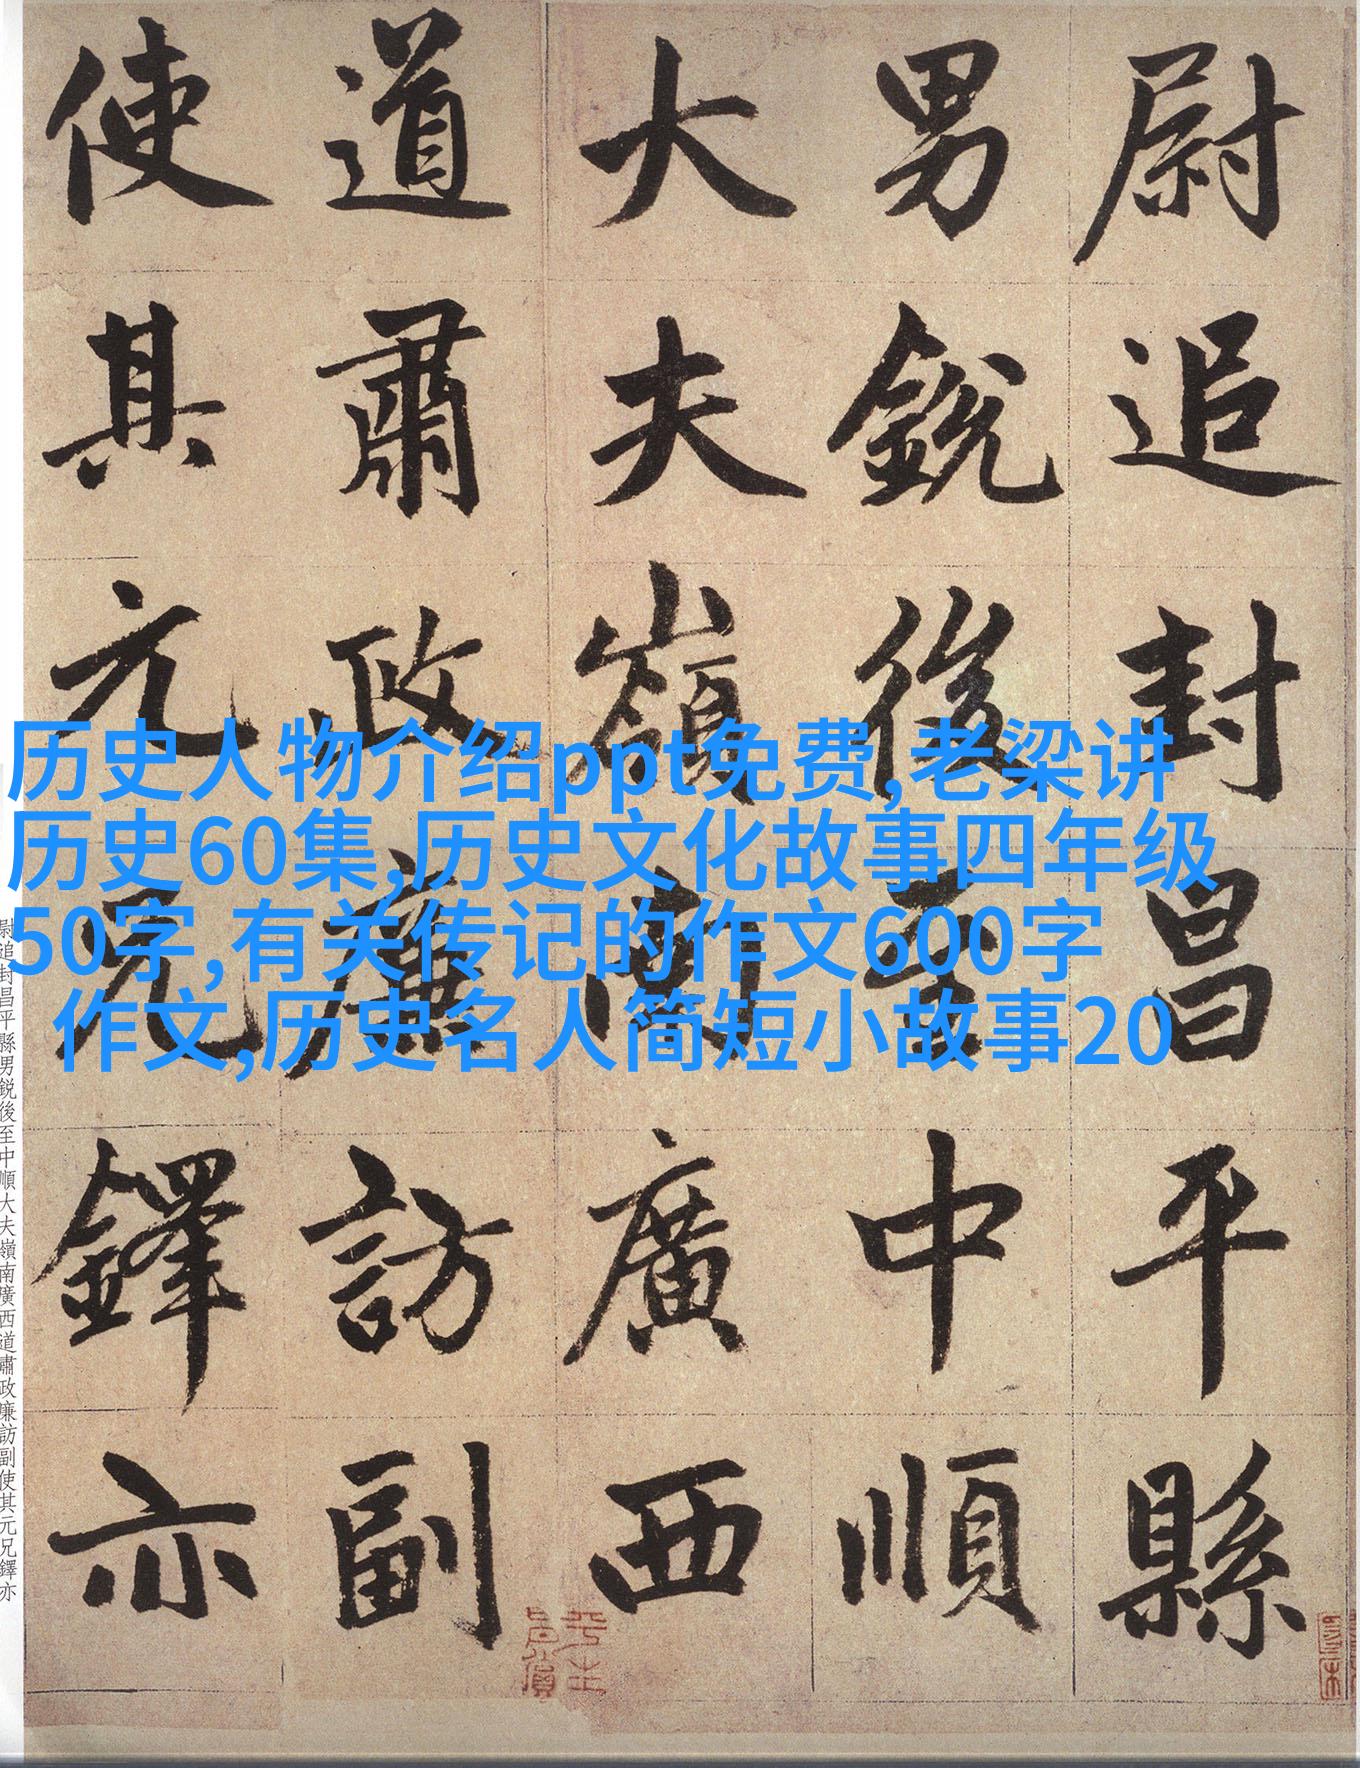 尉追封昌平縣
男銳後至中順
大夫嶺南廣西
道肅政廉訪副
使其元兄鐸亦
历史人物介绍ppt免费,老梁讲
历史60集,历史文化故事四年级
50字,有关传记的作文600字
作文,历史名人简短小故事20
尉追封昌平縣男銳後至中順大夫嶺南廣西道肅政廉訪副使其元兄鐸亦